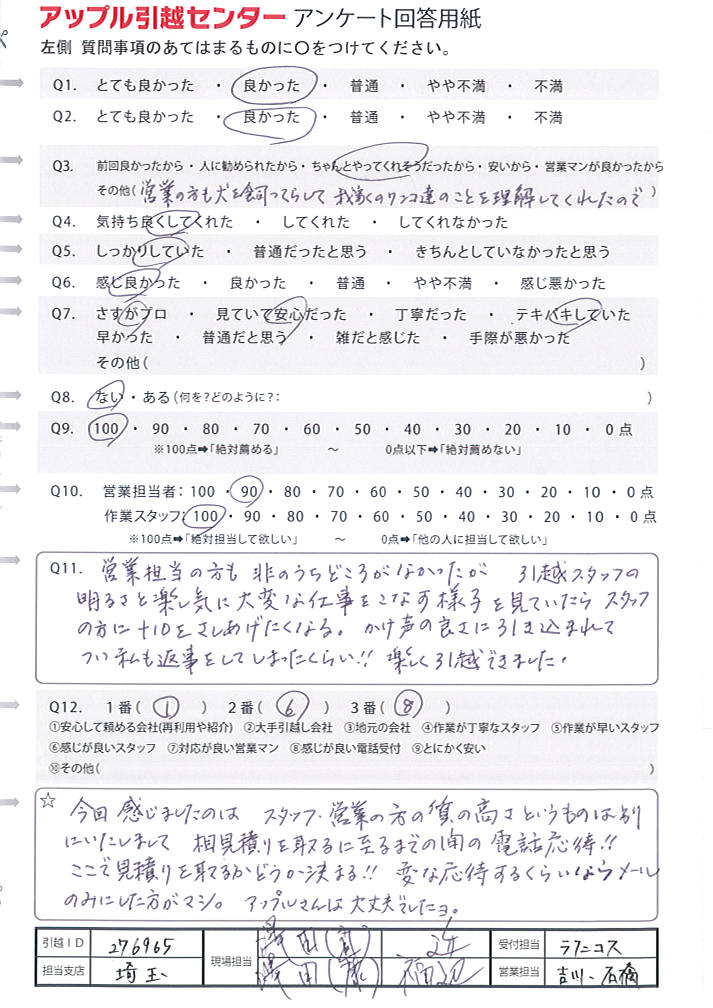 アップル引越センター アンケート回答用紙
左側 質問事項のあてはまるものに〇をつけてください。
Q1. とても良かった ・ 良かった ・ 普通 ・ やや不満 ・ 不満
Q2. とても良かった ・ 良かった ・ 普通 ・ やや不満 ・ 不満
Q3. 前回良かったから・人に勧められたから・ちゃんとやってくれそうだったから・安いから・営業マンが良かったから
その他(営業の方も犬を飼ってらして 我家のワンコ達のことを理解してくれたので)
Q4. 気持ち良くしてくれた ・ してくれた ・ してくれなかった
Q5. しっかりしていた ・ 普通だったと思う ・ きちんとしていなかったと思う
Q6. 感じ良かった ・ 良かった ・ 普通 ・ やや不満 ・ 感じ悪かった
Q7. さすがプロ ・ 見ていて安心だった ・ 丁寧だった ・ テキパキしていた
早かった ・ 普通だと思う ・ 雑だと感じた ・ 手際が悪かった
その他( )
Q8. ない・ある(何を?どのように?: )
Q9. 100 ・ 90 ・ 80 ・ 70 ・ 60 ・ 50 ・ 40 ・ 30 ・ 20 ・ 10 ・ 0点
※100点➡「絶対薦める」 ～ 0点以下➡「絶対薦めない」
Q10. 営業担当者:100 ・ 90 ・ 80 ・ 70 ・ 60 ・ 50 ・ 40 ・ 30 ・ 20 ・ 10 ・ 0点
作業スタッフ:100 ・ 90 ・ 80 ・ 70 ・ 60 ・ 50 ・ 40 ・ 30 ・ 20 ・ 10 ・ 0点
※100点➡「絶対担当して欲しい」 ～ 0点➡「他の人に担当して欲しい」
Q11. 営業担当の方も 非のうちどころがなかったが 引越スタッフの
明るさと楽し気に大変な仕事をこなす様子を見ていたら スタッフ
の方に+10をさしあげたくなる。かけ声の良さに引き込まれて
つい私も返事をしてしまったくらい!! 楽しく引越できました。
Q12. 1番( 1 ) 2番( 6 ) 3番( 8 )
①安心して頼める会社(再利用や紹介) ②大手引越し会社 ③地元の会社 ④作業が丁寧なスタッフ ⑤作業が早いスタッフ
⑥感じが良いスタッフ ⑦対応が良い営業マン ⑧感じが良い電話受付 ⑨とにかく安い
⑩その他( )
☆ 今回 感じましたのは スタッフ・営業の方の質の高さというものは別
にいたしまして 相見積りを取るに至るまでの間の 電話応待!!
ここで見積りを取るかどうか決まる!! 変な応待するくらいならメール
のみにした方がマシ。アップルさんは大丈夫でしたヨ。
引越ID 276965 現場担当 受付担当 ラフニコス
担当支店 埼玉 営業担当 吉川、石橋